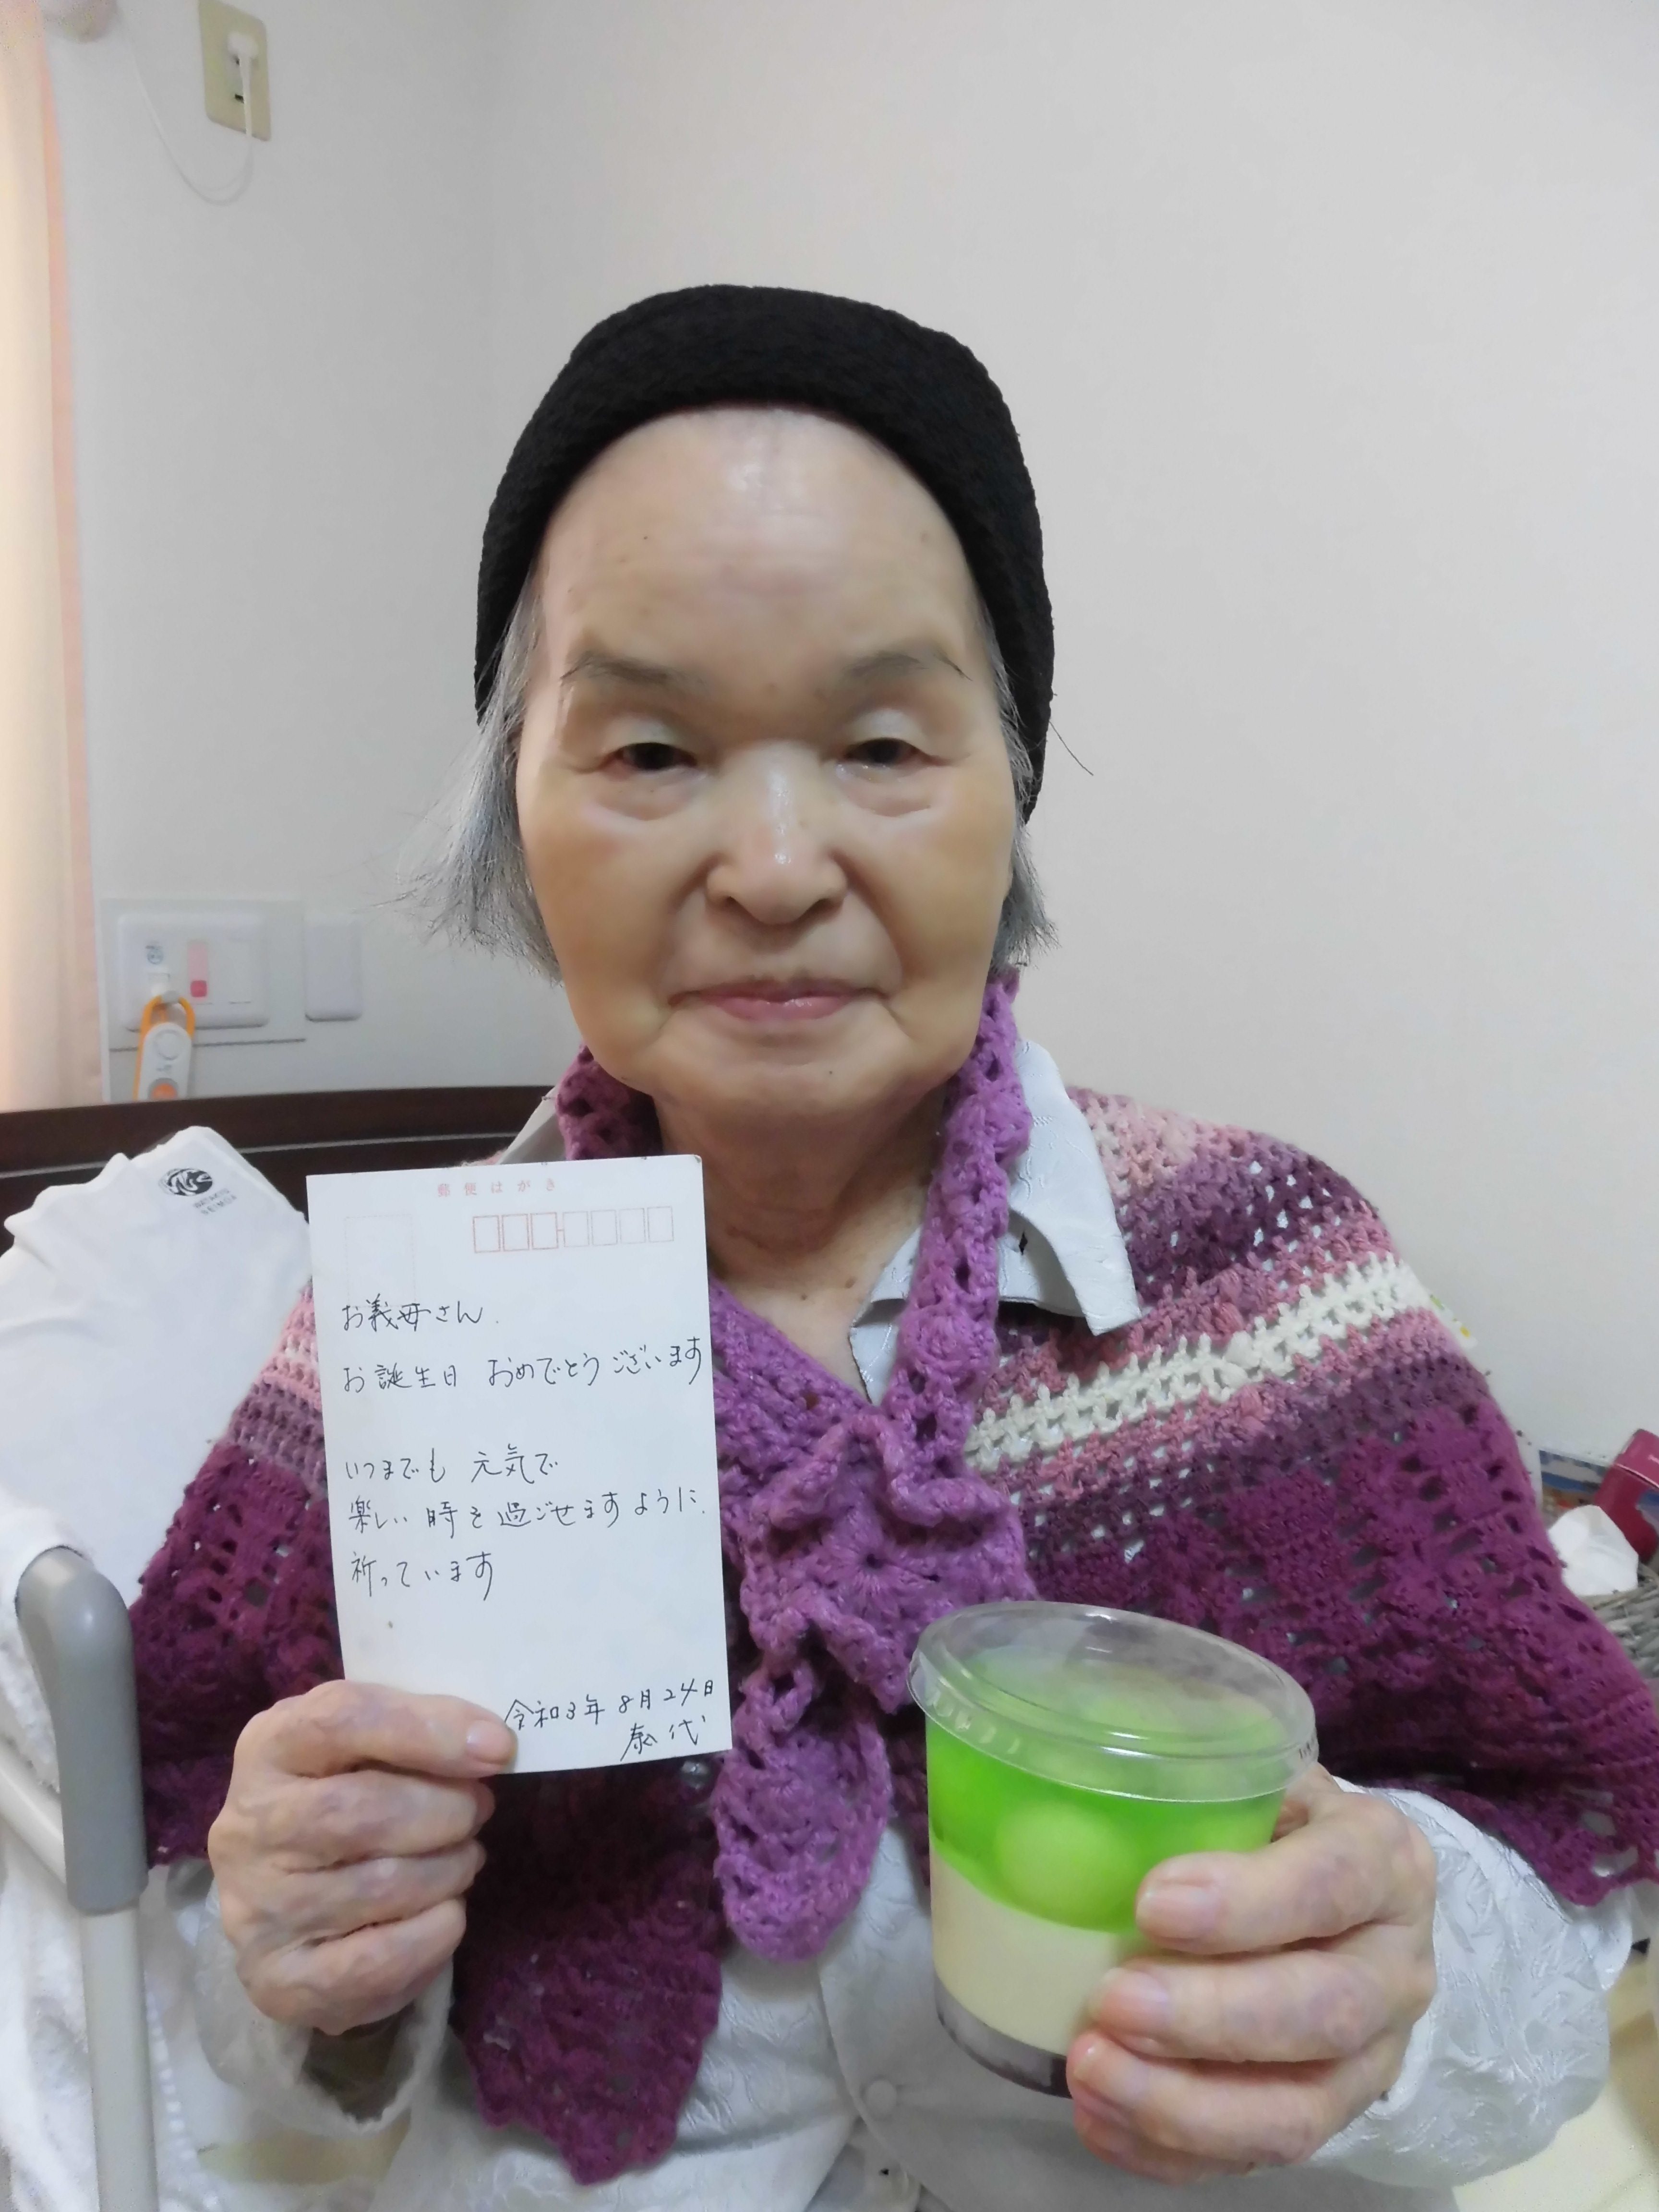 郵便はがき
お義母さん.
お誕生日 おめでとうございます
いつまでも 元気で
楽しい 時を 過ごせますように.
祈っています
令和3年 8月24日
泰代